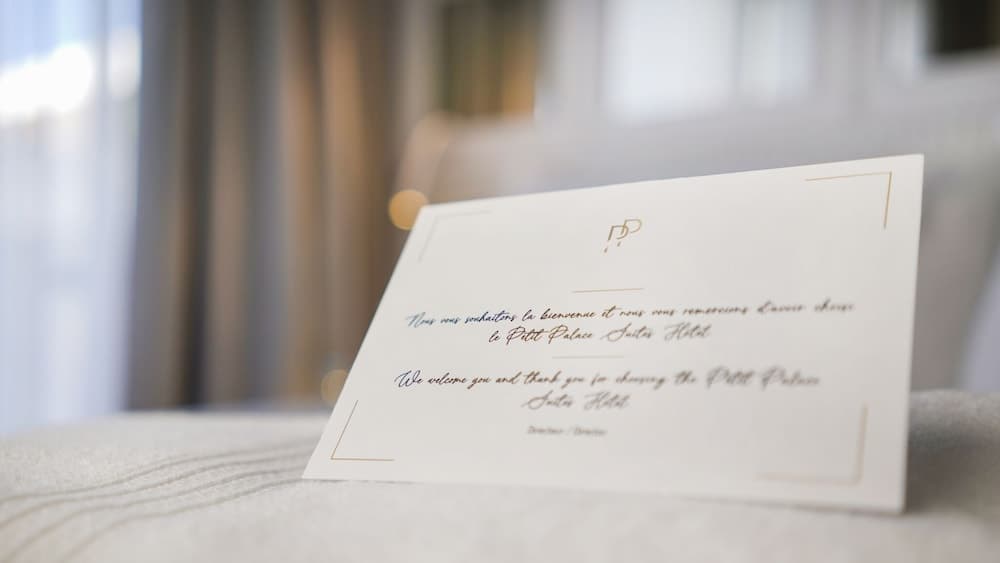 PP
Nous vous souhaitons la bienvenue et nous vous remercions d'avoir choisi
le Petit Palace Suites Hotel
We welcome you and thank you for choosing the Petit Palace
Suites Hotel
Directeur / Director